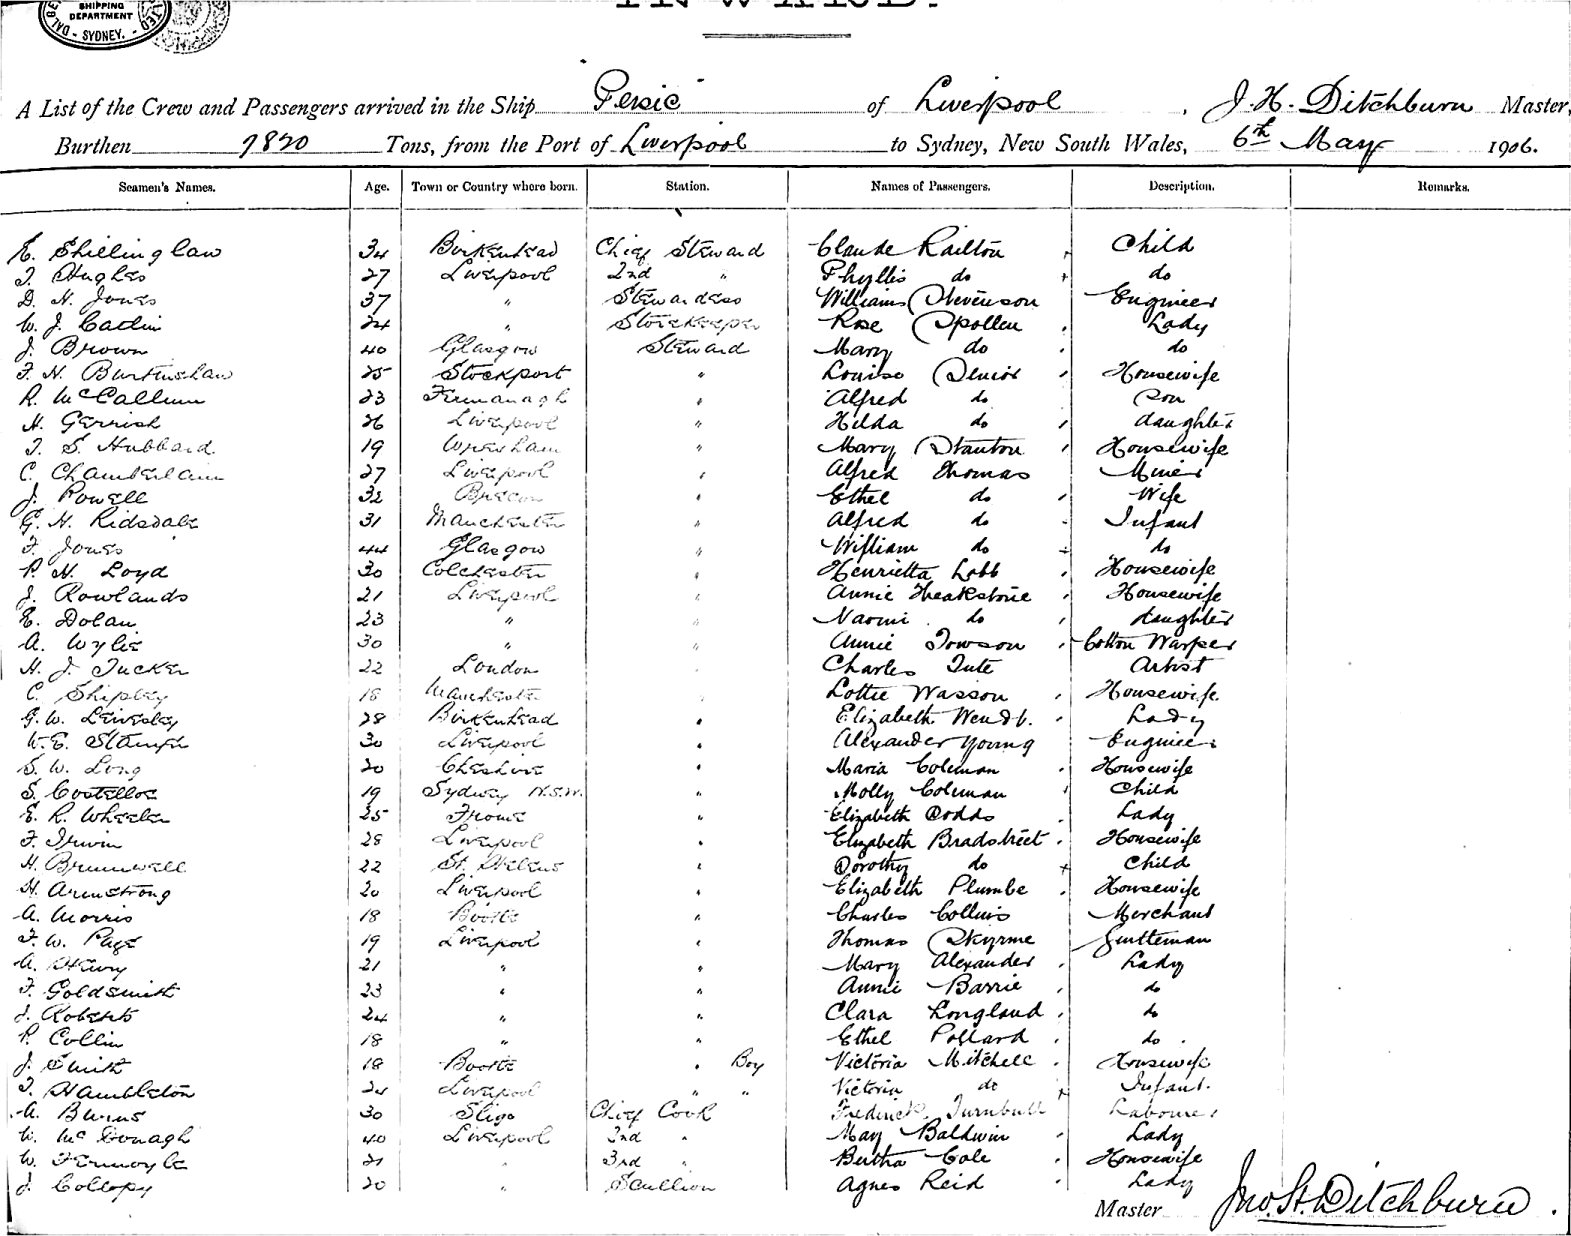 SHIPPING
DEPARTMENT
- SYDNEY. -
INWARD.
A List of the Crew and Passengers arrived in the Ship Persic of Liverpool, J. H. Ditchburn Master,
Burthen 7820 Tons, from the Port of Liverpool to Sydney, New South Wales, 6th May 1906.
Seamen's Names. Age. Town or Country where born. Station. Names of Passengers. Description. Remarks.
E. Shillinglaw 34 Birkenhead Chief Steward Claude Railton Child
T. Hughes 27 Liverpool 2nd " Phyllis do do
D. H. Jones 37 " Stewardess William Stevenson Engineer
W. J. Catlin 24 " Storekeeper Rose Spollen Lady
J. Brown 40 Glasgow Steward Mary do do
F. H. Burtinshaw 25 Stockport " Louise Senior Housewife
R. McCallum 23 Firmanagh " Alfred do Son
H. Gerrish 26 Liverpool " Hilda do daughter
T. S. Hubbard 19 Wrexham " Mary Stanton Housewife
C. Chamberlain 27 Liverpool " Alfred Thomas Miner
J. Powell 32 Brecon " Ethel do Wife
G. H. Ridsdale 31 Manchester " Alfred do Infant
F. Jones 44 Glasgow " William do do
P. H. Loyd 30 Colchester " Henrietta Lobb Housewife
J. Rowlands 21 Liverpool " Annie Theakstone Housewife
E. Dolan 23 " " Naomi do daughter
A. Wylie 30 " " Annie Towson Cotton Warper
H. J. Tucker 22 London Charles Tute Artist
C. Shipley 18 Manchester Lottie Wasson Housewife
G. W. Livesley 28 Birkenhead " Elizabeth Wendt. Lady
W. E. 30 Liverpool " Alexander Young Engineer
S. W. Long 20 Cheshire " Maria Coleman Housewife
S. Costelloe 19 Sydney N.S.W. " Molly Coleman Child
E. R. Wheeler 25 Frome " Elizabeth Dodds Lady
F. Irwin 28 Liverpool " Elizabeth Bradstreet Housewife
H. Brumwell 22 St. Helens " Dorothy do Child
H. Armstrong 20 Liverpool " Elizabeth Plumbe Housewife
A. Morris 18 Bootle " Charles Collins Merchant
F. W. Page 19 Liverpool " Thomas Skyrme Gentleman
A. Henry 21 " " Mary Alexander Lady
F. Goldsmith 23 " " Annie Barrie do
J. Roberts 24 " " Clara Longland do
P. Collin 18 " " Ethel Pollard do
J. Smith 18 Bootle " Boy Victoria Mitchell Housewife
T. Hambleton 24 Liverpool " " Victoria do Infant.
A. Burns 30 Sligo Chief Cook Frederick Turnbull Labourer
W. McDonagh 40 Liverpool 2nd " May Baldwin Lady
W. Fermoyle 21 " 3rd " Bertha Cole Housewife
J. Collopy 20 " Scullion Agnes Reid Lady
Master Jno. H. Ditchburn.